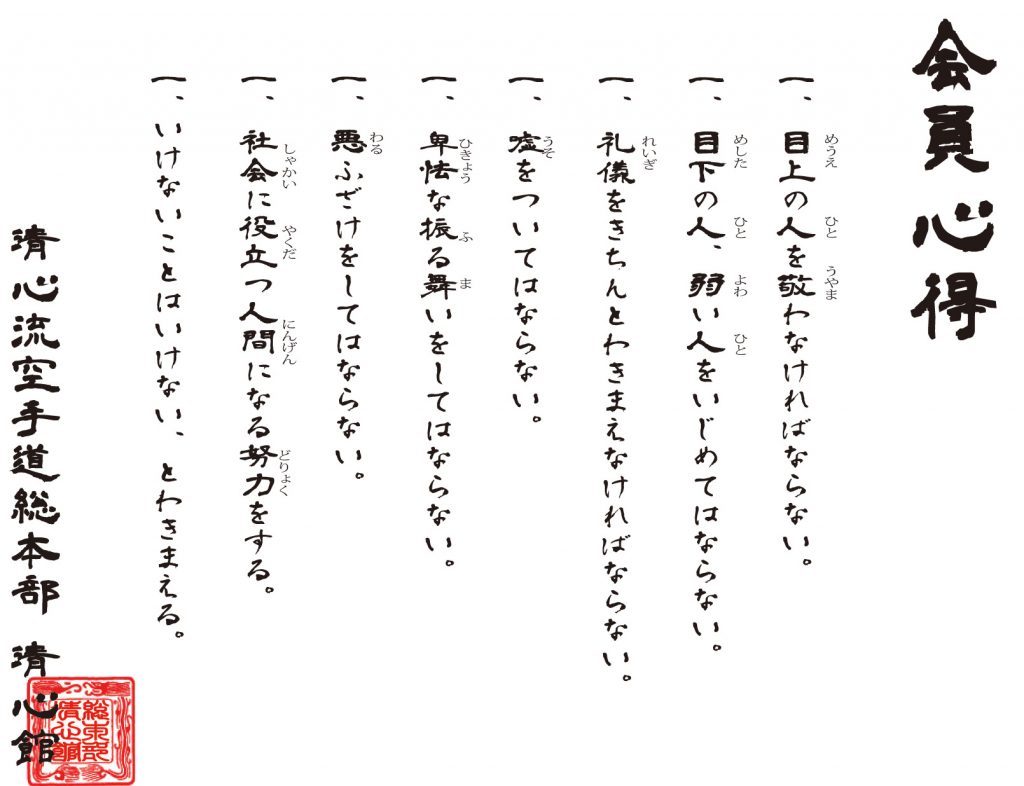 会員心得
一、目上の人を敬わなければならない。
一、目下の人、弱い人をいじめてはならない。
一、礼儀をきちんとわきまえなければならない。
一、嘘をついてはならない。
一、卑怯な振る舞いをしてはならない。
一、悪ふざけをしてはならない。
一、社会に役立つ人間になる努力をする。
一、いけないことはいけない、とわきまえる。
清心流空手道総本部 清心館
総本部清心館